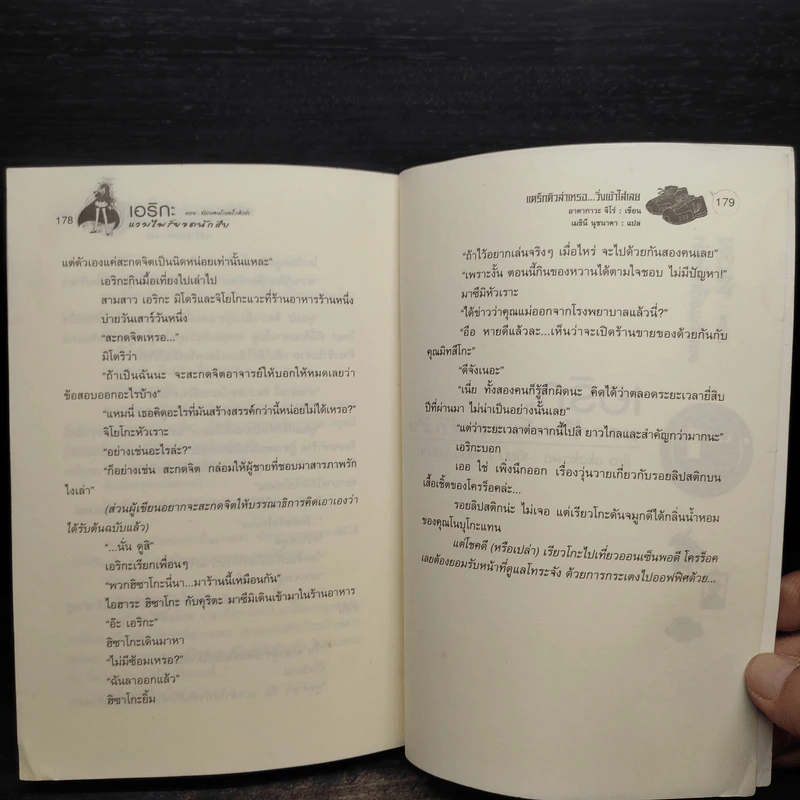 178
เอริกะ
แวมไพร์ยอดนักสืบ
แต่ตัวเองแค่สะกดจิตเป็นนิดหน่อยเท่านั้นแหละ"
เอริกะกินมื้อเที่ยงไปเล่าไป
สามสาว เอริกะ มิโดริและจิโยโกะแวะที่ร้านอาหารร้านหนึ่ง
บ่ายวันเสาร์วันหนึ่ง
"สะกดจิตเหรอ..."
มิโดริว่า
"ถ้าเป็นฉันนะ จะสะกดจิตอาจารย์ให้บอกให้หมดเลยว่า
ข้อสอบออกอะไรบ้าง"
"แหมนี่ เธอคิดอะไรที่มันสร้างสรรค์กว่านี้หน่อยไม่ได้เหรอ?"
จิโยโกะหัวเราะ
"อย่างเช่นอะไรล่ะ?"
"ก็อย่างเช่น สะกดจิต กล่อมให้ผู้ชายที่ชอบมาสารภาพรัก
ไงเล่า"
(ส่วนผู้เขียนอยากจะสะกดจิตให้บรรณาธิการคิดเอาเองว่า
ได้รับต้นฉบับแล้ว)
"...นั่น ดูสิ"
เอริกะเรียกเพื่อนๆ
"พวกฮิซาโกะนี่นา...มาร้านนี้เหมือนกัน"
ไอฮาระ ฮิซาโกะ กับคุริตะ มาซึมิเดินเข้ามาในร้านอาหาร
"อ๊ะ เอริกะ"
ฮิซาโกะเดินมาหา
"ไม่มีซ้อมเหรอ?"
"ฉันลาออกแล้ว"
ฮิซาโกะยิ้ม
แดร็กคิวล่าเหรอ...วิ่งเข้าใส่เลย
อาคากาวะ จิโร่ : เขียน
เมธินี นุชนาคา : แปล
179
"ถ้าไว้อยากเล่นจริงๆ เมื่อไหร่ จะไปด้วยกันสองคนเลย"
"เพราะงั้น ตอนนี้กินของหวานได้ตามใจชอบ ไม่มีปัญหา!"
มาซึมิหัวเราะ
"ได้ข่าวว่าคุณแม่ออกจากโรงพยาบาลแล้วนี่?"
"อือ หายดีแล้วละ...เห็นว่าจะเปิดร้านขายของด้วยกันกับ
คุณมิทสึโกะ"
"ดีจังเนอะ"
"เนี่ย ทั้งสองคนก็รู้สึกผิดนะ คิดได้ว่าตลอดระยะเวลายี่สิบ
ปีที่ผ่านมา ไม่น่าเป็นอย่างนั้นเลย"
"แต่ว่าระยะเวลาต่อจากนี้ไปสิ ยาวไกลและสำคัญกว่ามากนะ"
เอริกะบอก
เออ ใช่ เพิ่งนึกออก เรื่องวุ่นวายเกี่ยวกับรอยลิปสติกบน
เสื้อเชิ้ตของโครร็อคล่ะ...
รอยลิปสติกน่ะ ไม่เจอ แต่เรียวโกะดันจมูกดีได้กลิ่นน้ำหอม
ของคุณโนบุโกะแทน
แต่โชคดี (หรือเปล่า) เรียวโกะไปเที่ยวออนเซ็นพอดี โครร็อค
เลยต้องยอมรับหน้าที่ดูแลโทระจัง ด้วยการกระเตงไปออฟฟิศด้วย...